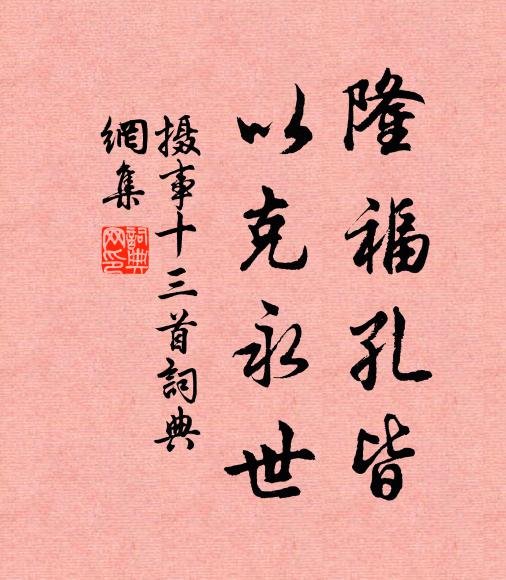 隆福孔皆
以克永世
摄事十三首詞典
網集
詞典
网印